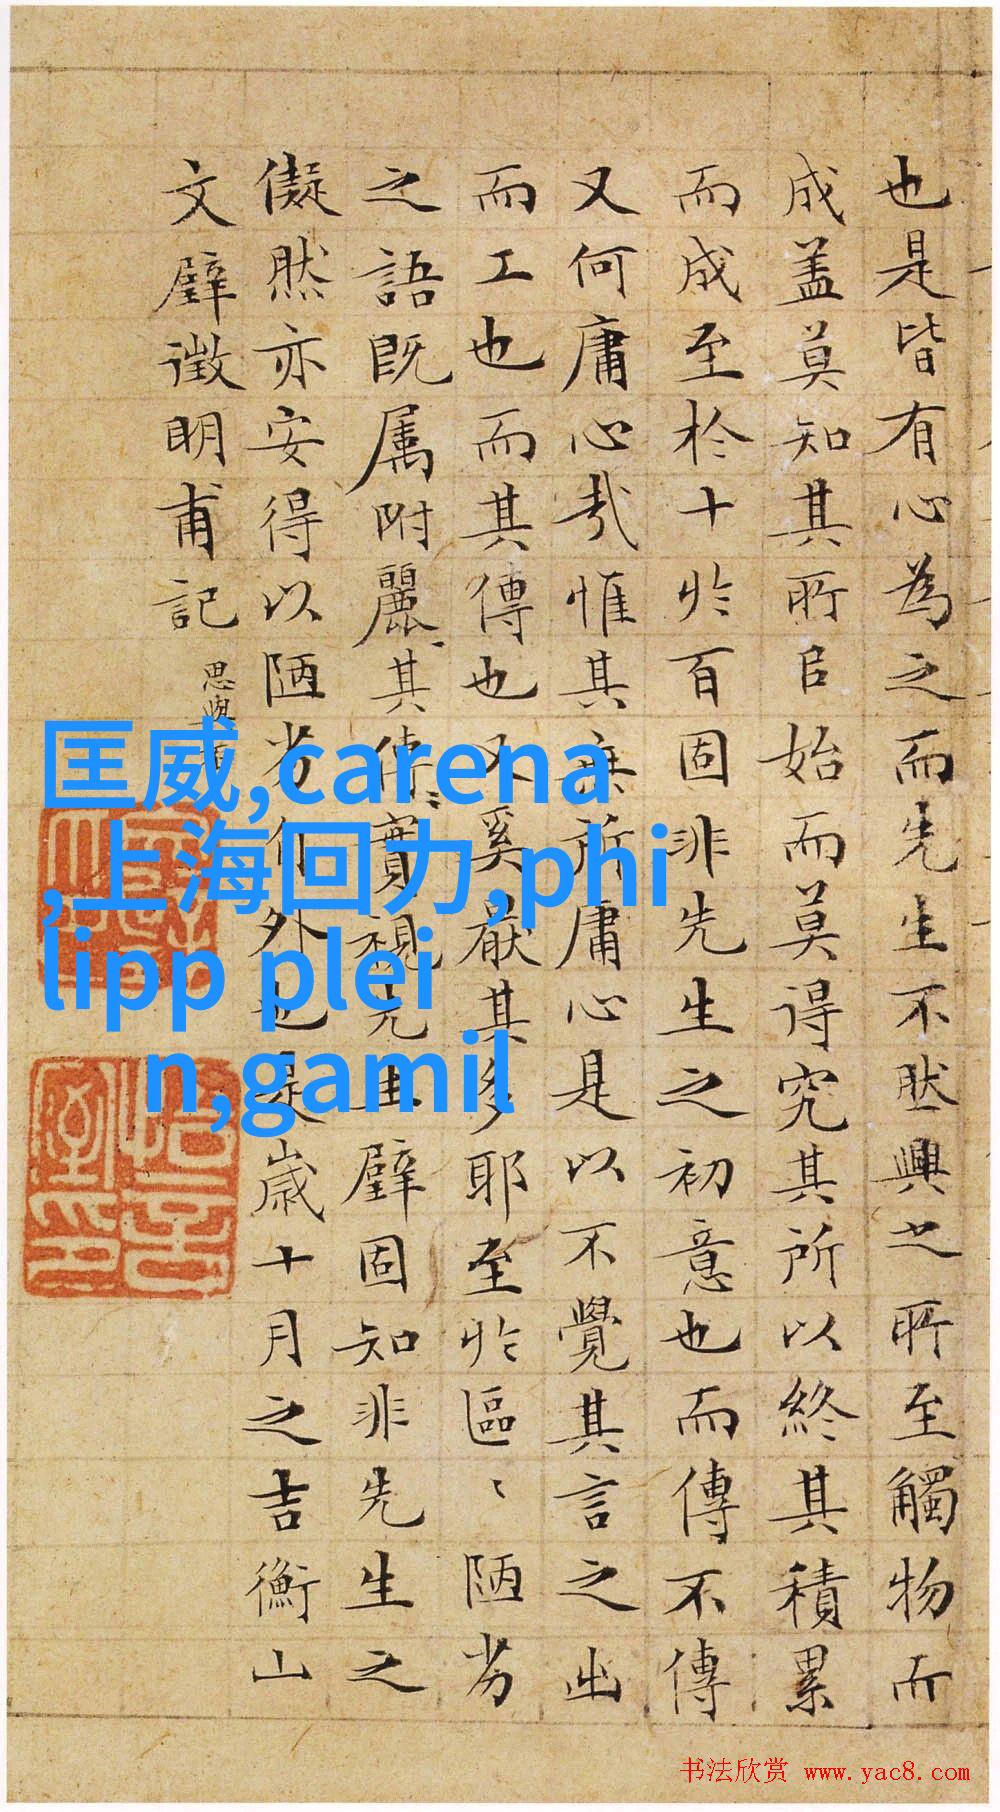 也是皆有心為之而先生不然興之所至觸物而
成盖莫知其所㠯始而莫得究其所以終其積累
而成至於十於百固非先生之初意也而傳不傳
又何庸心哉惟其無所庸心是以不覺其言之出
而工也而其傳也又奚厭其多耶至於區〻陋劣
之語既属附麗其傳實視先生璧固知非先生之
儗然亦安得以陋劣自外也是歳十月之吉衡山
文璧徵明甫記
匡威,carena
,上海回力,phi
lipp plei
n,gamil
书法欣赏 www.yac8.com